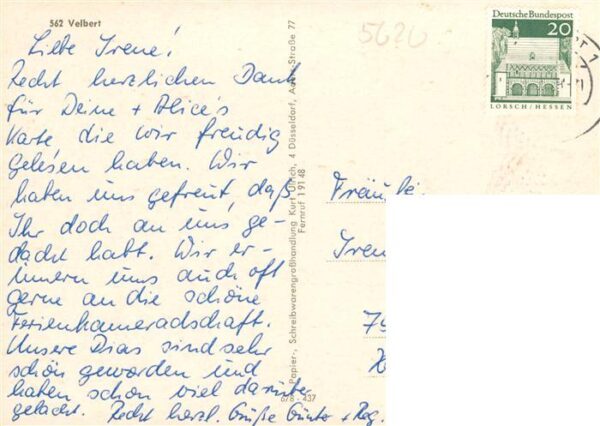 562 Velbert
Liebe Irene!
Recht herzlichen Dank
für Deine + Alice's
Karte die wir freudig
gelesen haben. Wir
haben uns gefreut, daß
Ihr doch an uns ge-
dacht habt. Wir er-
innern uns auch oft
gerne an die schöne
Ferienkameradschaft.
Unsere Dias sind sehr
schön geworden und
haben schon viel darüber
gelacht. Recht herzl. Grüße Günter + Reg.
Papier-, Schreibwarengroßhandlung Kurt Ullrich, 4 Düsseldorf, Straße 77
Fernruf 19148
878 - 437
5620
Deutsche Bundespost
20
LORSCH/HESSEN
Fräulei
Iren
79